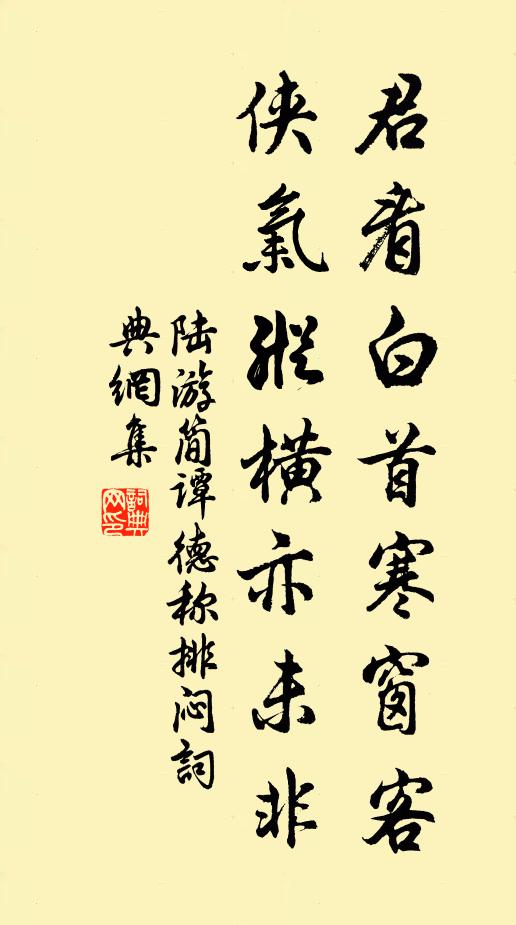 君看白首寒窗客
侠氣縱橫亦未非
陆游简谭德称排闷詞
典網集
詞典网印